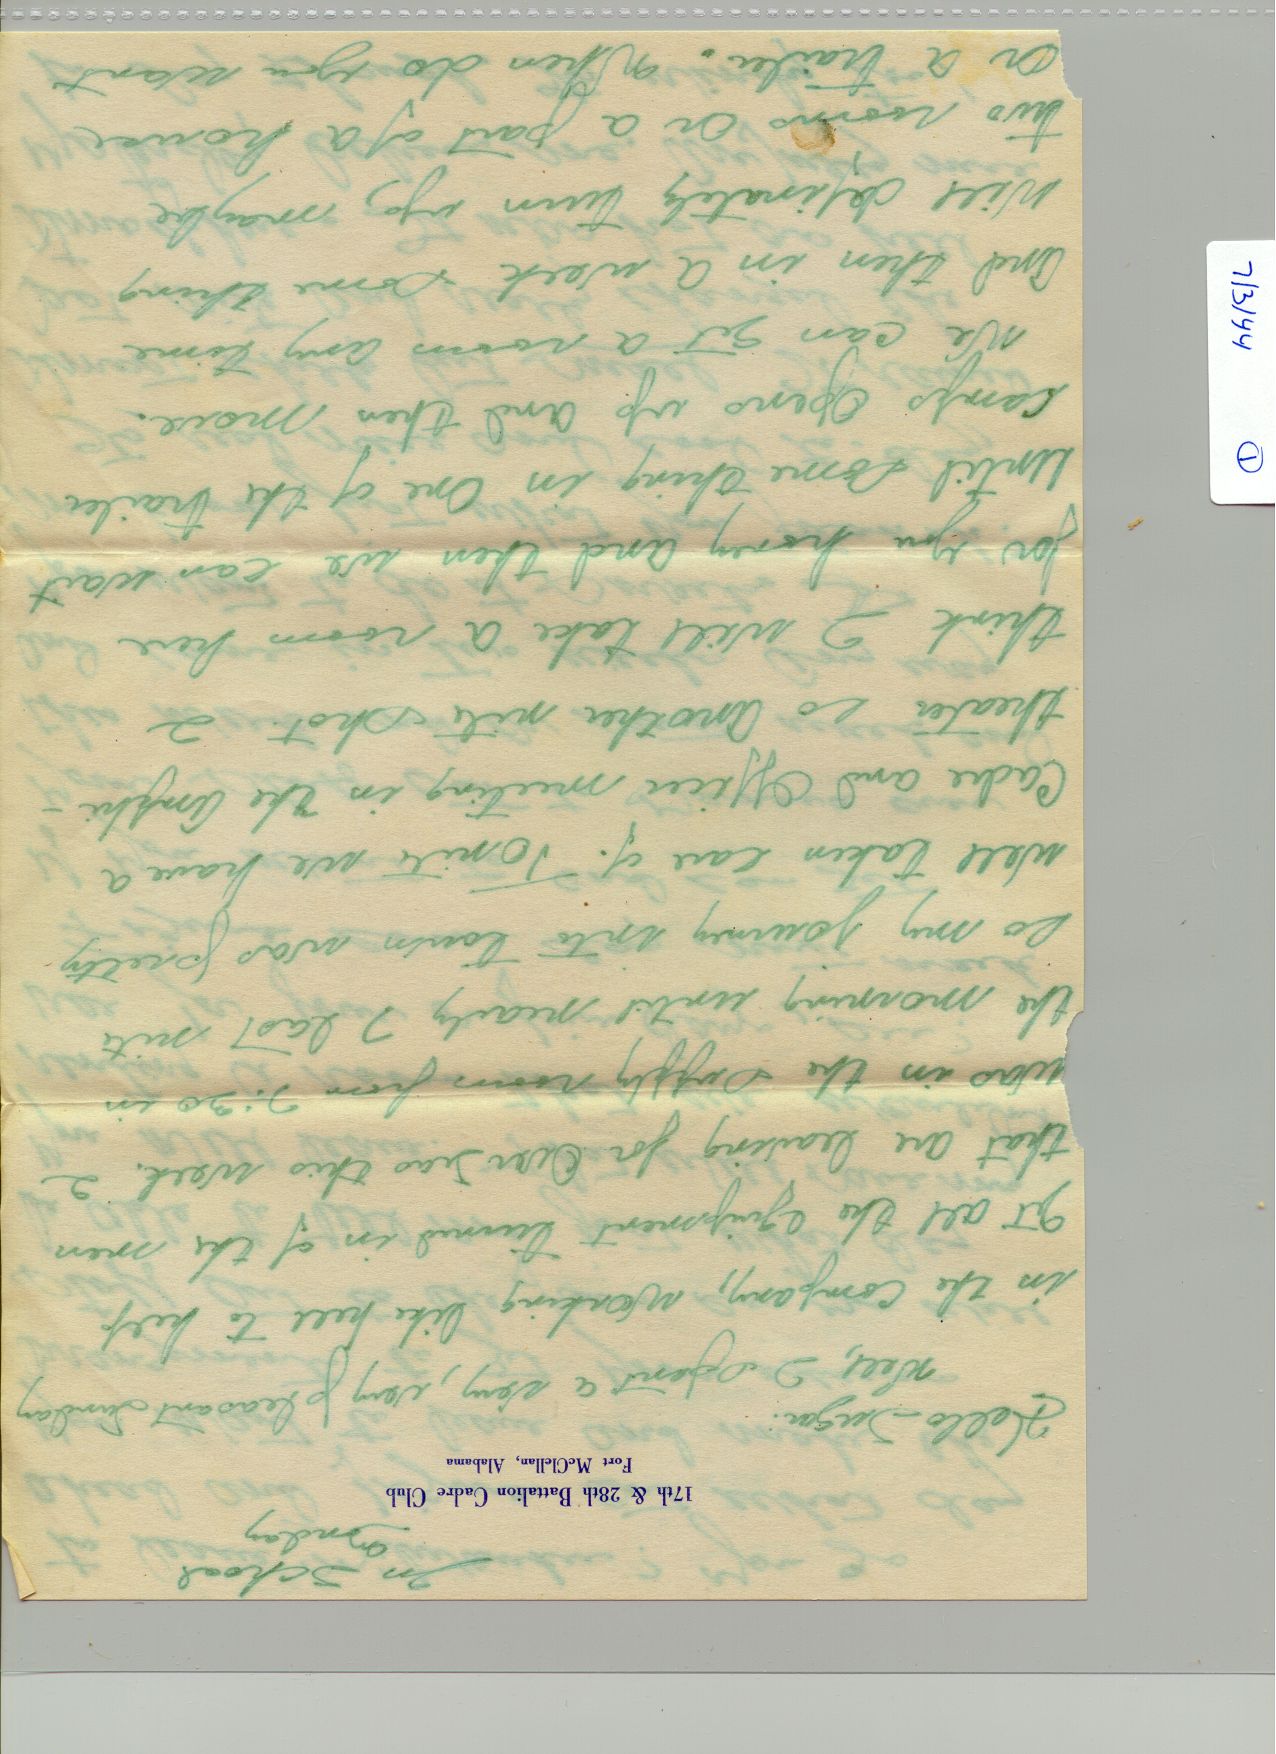 In School
Monday
17th & 28th Battalion Cadre Club
Fort McClellan, Alabama
Hello Sugar:
Well, I spent a very, very pleasant Sunday
in the Company, working like hell to help
get all the Equipment turned in of the men
that are leaving for Over Seas this week. I
was in the Supply room from 7:30 in
the morning until nearly 7 last nite
so my journey into town was pretty
well taken care of. Tonite we have a
Cadre and Officer meeting in the Amphi-
theater so another nite shot. I
think I will take a room here
for you honey and then we can wait
until some thing in One of the trailer
camps Opens up and then move.
We can get a room any time
and then in a week some thing
will definately turn up, maybe
two rooms or a part of a house
or a trailer. When do you want
7/3/44
1